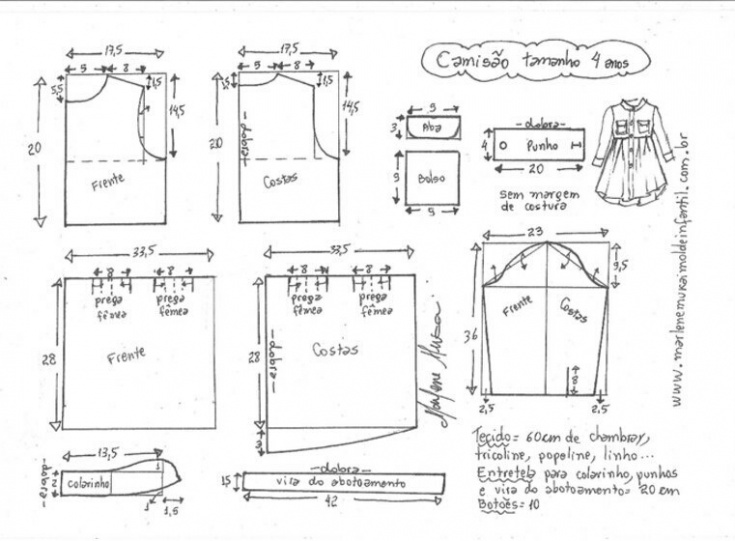 Camisão tamanho 4 anos
17,5
5
8
5,5
1,5
14,5
20
Frente
17,5
5
8
1,5
14,5
20
dobra
Costas
5
3
Aba
9
Bolso
5
dobra
4
Punho
20
sem margem
de costura
www.marlenemukaimoldeinfantil.com.br
33,5
8
8
prega
fêmea
prega
fêmea
28
Frente
33,5
8
8
prega
fêmea
prega
fêmea
28
dobra
Costas
3
23
9,5
36
Frente
Costas
8
2,5
2,5
13,5
dobra
2
colarinho
1
1
1,5
dobra
vira do abotoamento
42
Tecido = 60cm de chambray,
tricoline, popeline, linho...
Entretela para colarinho, punhos
e vira do abotoamento = 20 cm
Botões = 10